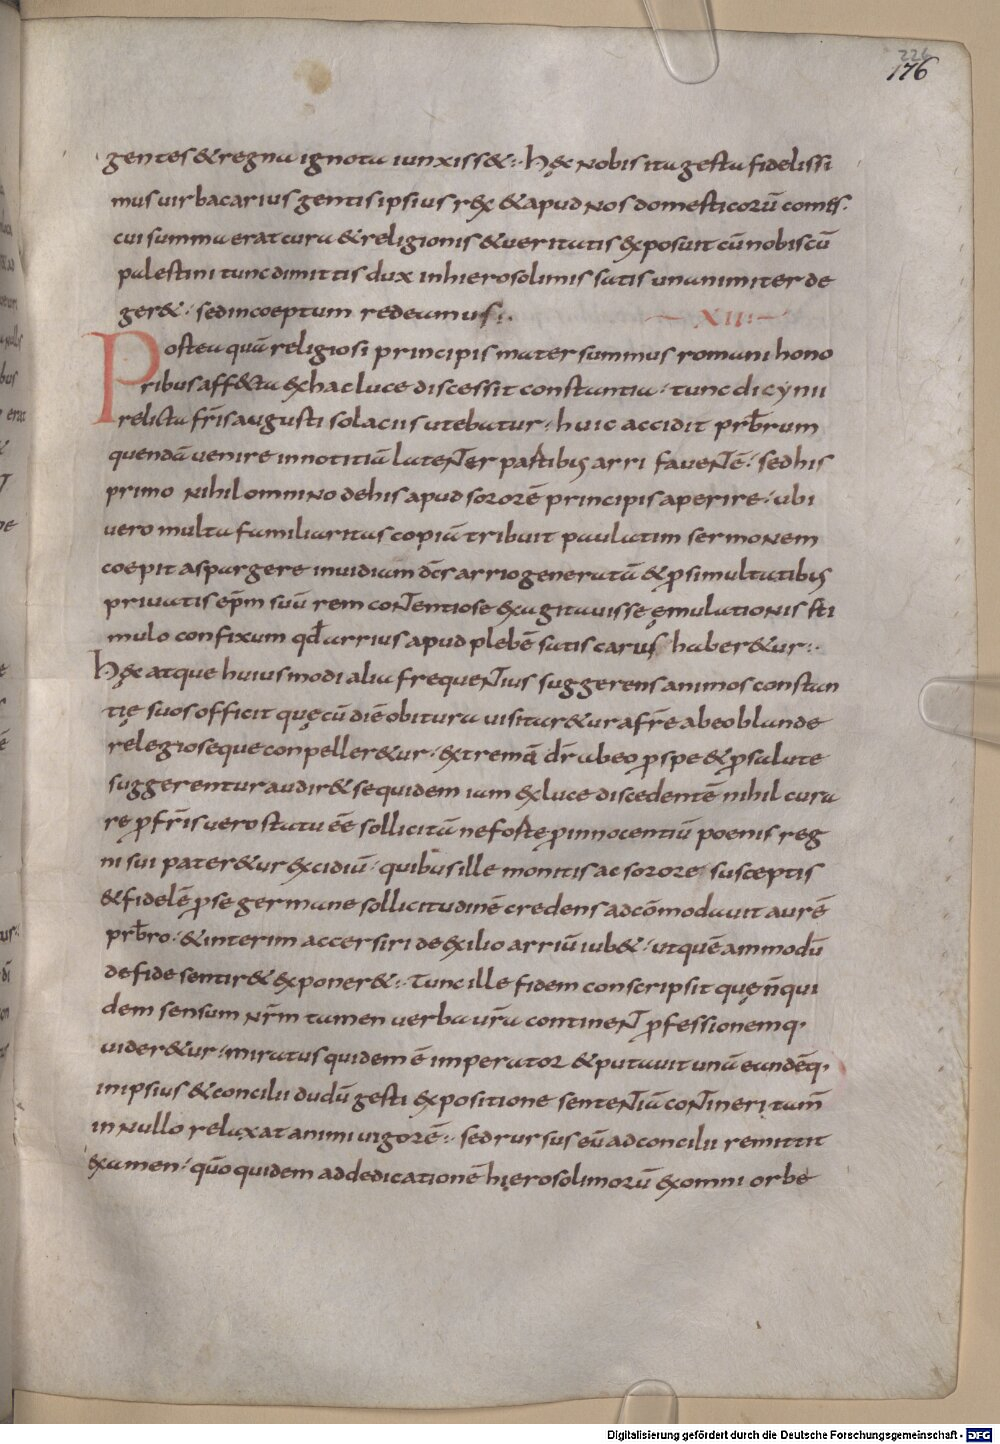 226
176
gentes & regna ignota iunxiss&: hęc nobis ita gesta fidelissi
mus uir bacarius gentis ipsius rex & apud nos domesticorū comes.
cui summa erat cura & religionis & ueritatis exposuit cū nobiscū
palestini tunc dimittis dux in hierosolimis satis unanimiter de
ger&: sed incoeptum redeamus:.
XII:
Postea quā religiosi principis mater summus romani hono
ribus affecta ex hac luce discessit constantia. tunc dicynii
relicta frīs augusti solaciis utebatur. huic accidit prb̄rum
quendā uenire in notitiā latenter partibus arri fauentē. sed his
primo nihil omnino de his apud sororē principis aperire. ubi
uero multa familiaritas copiā tribuit paulatim sermonem
coepit aspargere inuidiam dc̄s arrio generatā & p simultatibus
priuatis ep̄m suū rem contentiose exagitauisse ęmulationis sti
mulo confixum qd̄ arrius apud plebē satis carus haber&ur:.
Hęc atque huiusmodi alia frequentius suggerens animos constan
tię suos officit quę cū diē obitura uisitar&ur a frē ab eo blande
relegioseque conpeller&ur. extrema dr̄ ab eo p spe & p salute
suggerentur audir& se quidem iam ex luce discedentē nihil cura
re p frīs uero statu ēē sollicitā ne forte p innocentiū poenis reg
ni sui pater&ur excidiū. quibus ille monitis ac sorore susceptis
& fidelē p se germane sollicitudinē credens adcōmodauit aurē
prb̄ro. & interim accersiri de exilio arriū iub&. ut quē ammodū
de fide sentir& exponer&:. Tunc ille fidem conscripsit quę n̄ qui
dem sensum nr̄m tamen uerba ur̄a continent pfessionemq.
uider&ur. miratus quidem ē imperator & putauit unā eandēq.
in ipsius & concilii dudū gesti expositione sententiā contineri tam̄
in nullo relaxat animi uigorē:. sed rursus eū ad concilii remittit
examen. quō quidem ad dedicationē hierosolimorū ex omni orbe
Digitalisierung gefördert durch die Deutsche Forschungsgemeinschaft - DFG